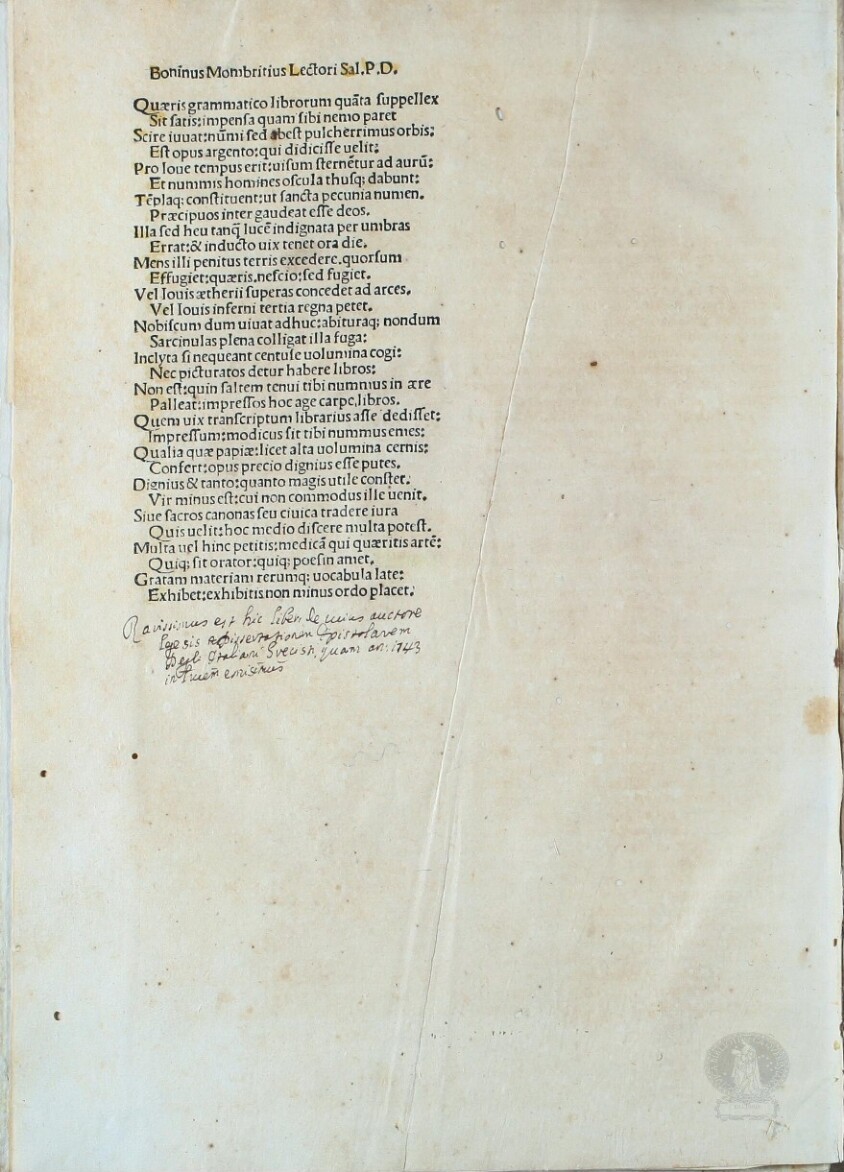 Boninus Mombritius Lectori Sal.P.D.
Quæris grammatico librorum quāta suppellex
Sit satis:impensa quam sibi nemo paret
Scire iuuat:nūmi sed abest pulcherrimus orbis:
Est opus argento:qui didicisse uelit:
Pro Ioue tempus erit:uisum sternētur ad aurū:
Et nummis homines oscula thusq; dabunt:
Tēplaq; constituent:ut sancta pecunia numen.
Præcipuos inter gaudeat esse deos.
Illa sed heu tanq̄ lucē indignata per umbras
Errat:& inducto uix tenet ora die.
Mens illi penitus terris excedere.quorsum
Effugiet:quæris.nescio:sed fugiet.
Vel Iouis ætherii superas concedet ad arces.
Vel Iouis inferni tertia regna petet.
Nobiscum dum uiuat adhuc:abituraq; nondum
Sarcinulas plena colligat illa fuga:
Inclyta si nequeant centuse uolumina cogi:
Nec picturatos detur habere libros:
Non est:quin saltem tenui tibi nummus in ære
Palleat:impressos hoc age carpe,libros.
Quem uix transcriptum librarius asse dedisset:
Impressum:modicus sit tibi nummus emes:
Qualia quæ papiæ:licet alta uolumina cernis:
Confert:opus precio dignius esse putes.
Dignius & tanto:quanto magis utile constet.
Vir minus est:cui non commodus ille uenit.
Siue sacros canonas seu ciuica tradere iura
Quis uelit:hoc medio discere multa potest.
Multa uel hinc petitis:medicā qui quæritis artē:
Quiq; sit orator:quiq; poesin amet.
Gratam materiam rerumq; uocabula late:
Exhibet:exhibitis non minus ordo placet.
Rarissimus est hic liber de cuius auctore
legesis Dissertationem Epistolarem
quam an. 1743
in lucem emisimus